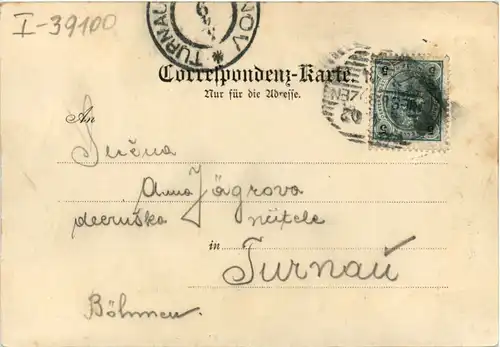 I-39100
TURNAU * TURNOV
Correspondenz-Karte.
Nur für die Adresse.
An
Slečna
Anna Jägrova
in
Turnau
Böhmen.